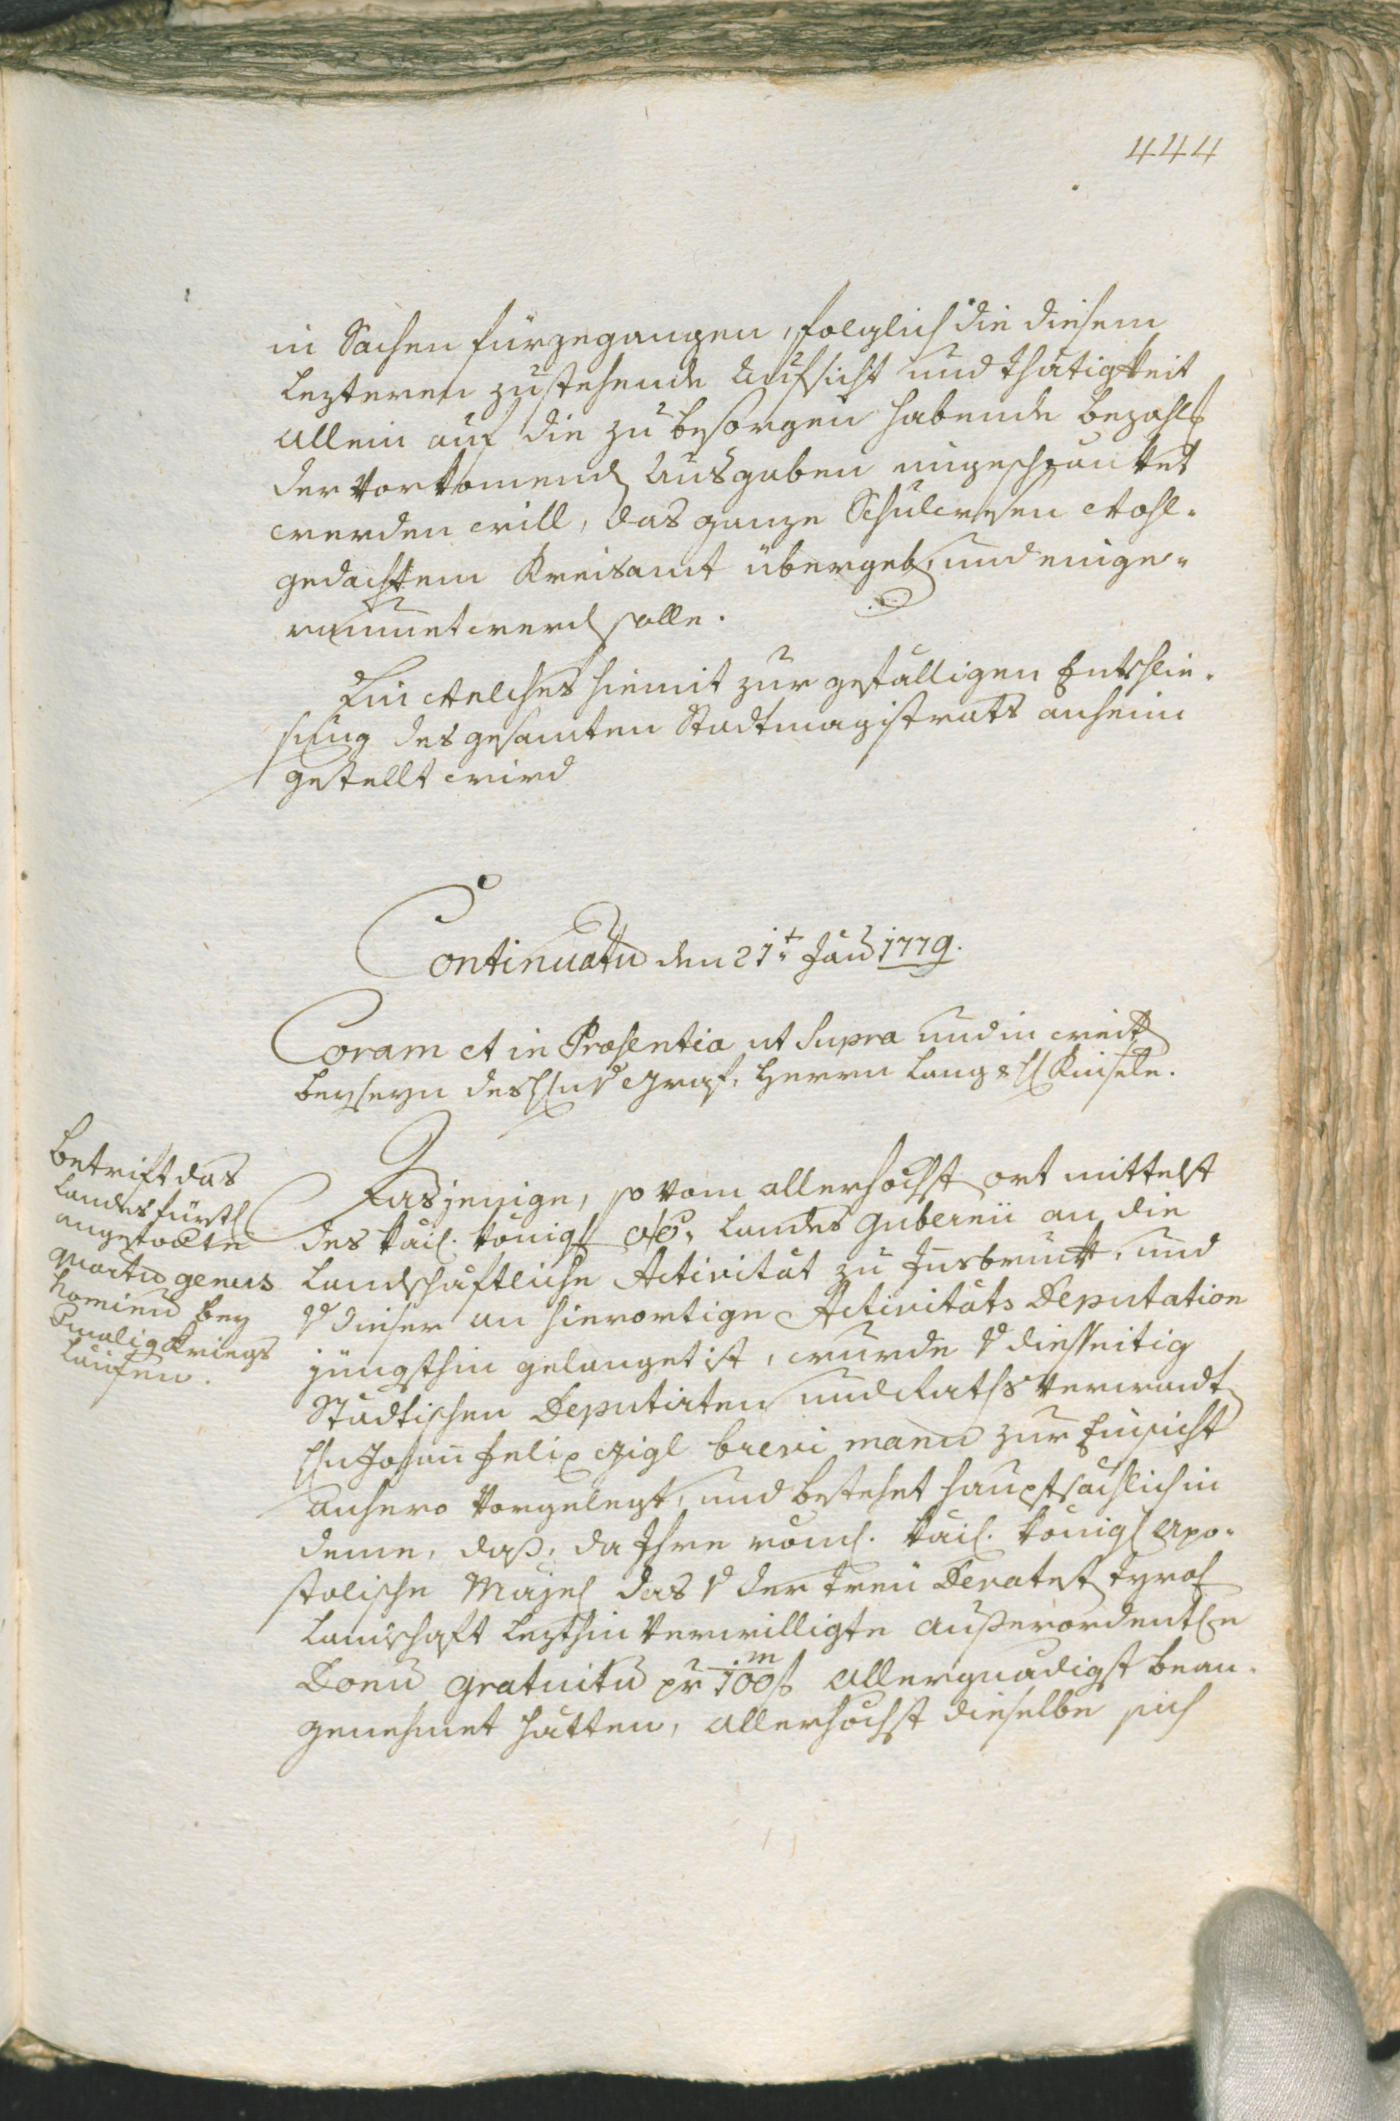 444
in Sachen fürzegangen, folglich die diesem
lezteren zustehende Aufsicht und Thätigkeit
allein auf die zu besorgen habende bezahl
der vorkomend Ausgaben eingeschrankhet
werden will, das ganze Schulwesen wohl-
gedachtem Kreisamt übergeb und einge-
raumet werd solle.
Ein welches hiemit zur gefälligen Entschlie-
ssung des gesamten Stadtmagistrats anheim
gestellt wird
Continuatu den 21t Jan 1779.
Coram et in Præsentia ut supra und in
beyseyn des Hn Graf, Herrn Lang
betrift das
landesfürstl
angesonnte
Mortu genus
hominu bey
maligKriegs
läufen.
Dasjenige, so vom allerhöchst ort mittelst
des kais. königl oö. Landes Gubernii an die
Landschaftliche Activität zu Insbrukk, und
dieser an hierortige Activitäts Deputation
jüngsthin gelanget ist, wurde diesseitig
Städtischen Deputirten und Raths Verwandt
Hn Johan Felix Zigl brevi manu zur Einsicht
anhero vorgelegt, und bestehet hauptsächlich in
deme, daß, da Ihre röml. kais. königl Apo-
stolische Majes das der treu Tyrol
Landschaft lezthin verwilligte außerordentl
Donu gratuitu pr 100m f allergnädigst bean-
genehmet hätten, allerhöchst dieselbe sich